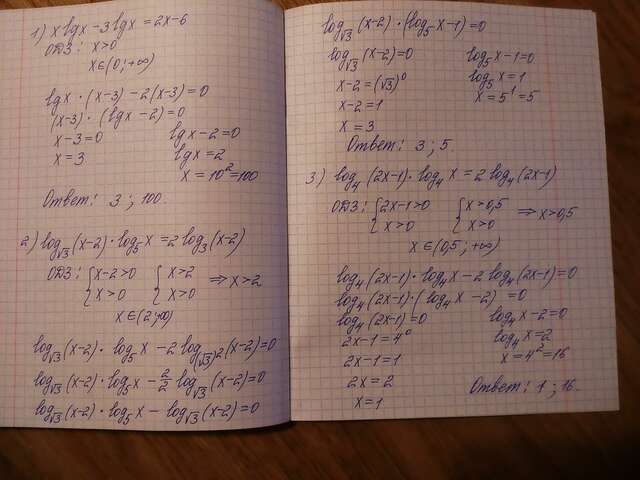 1) x lgx - 3 lgx = 2x - 6
ОДЗ: x>0
x∈(0; +∞)
lgx · (x-3) - 2(x-3) = 0
(x-3) · (lgx - 2) = 0
x-3=0 lgx-2=0
x=3 lgx=2
x=10²=100
Ответ: 3 ; 100.
2) log√3 (x-2) · log₅x = 2 log₃(x-2)
ОДЗ: { x-2>0 { x>2 ⇒ x>2
{ x>0 { x>0
x∈(2; ∞)
log√3 (x-2) · log₅x - 2 log(√3)² (x-2) = 0
log√3 (x-2) · log₅x - 2/2 log√3 (x-2) = 0
log√3 (x-2) · log₅x - log√3 (x-2) = 0
log√3 (x-2) · (log₅x - 1) = 0
log√3 (x-2) = 0 log₅x - 1 = 0
x-2 = (√3)⁰ log₅x = 1
x-2 = 1 x = 5¹ = 5
x = 3
Ответ: 3 ; 5.
3) log₄(2x-1) · log₄x = 2 log₄(2x-1)
ОДЗ: { 2x-1>0 { x>0,5 ⇒ x>0,5
{ x>0 { x>0
x∈(0,5; +∞)
log₄(2x-1) · log₄x - 2 log₄(2x-1) = 0
log₄(2x-1) · (log₄x - 2) = 0
log₄(2x-1) = 0 log₄x - 2 = 0
2x-1 = 4⁰ log₄x = 2
2x-1 = 1 x = 4² = 16
2x = 2 Ответ: 1 ; 16.
x = 1